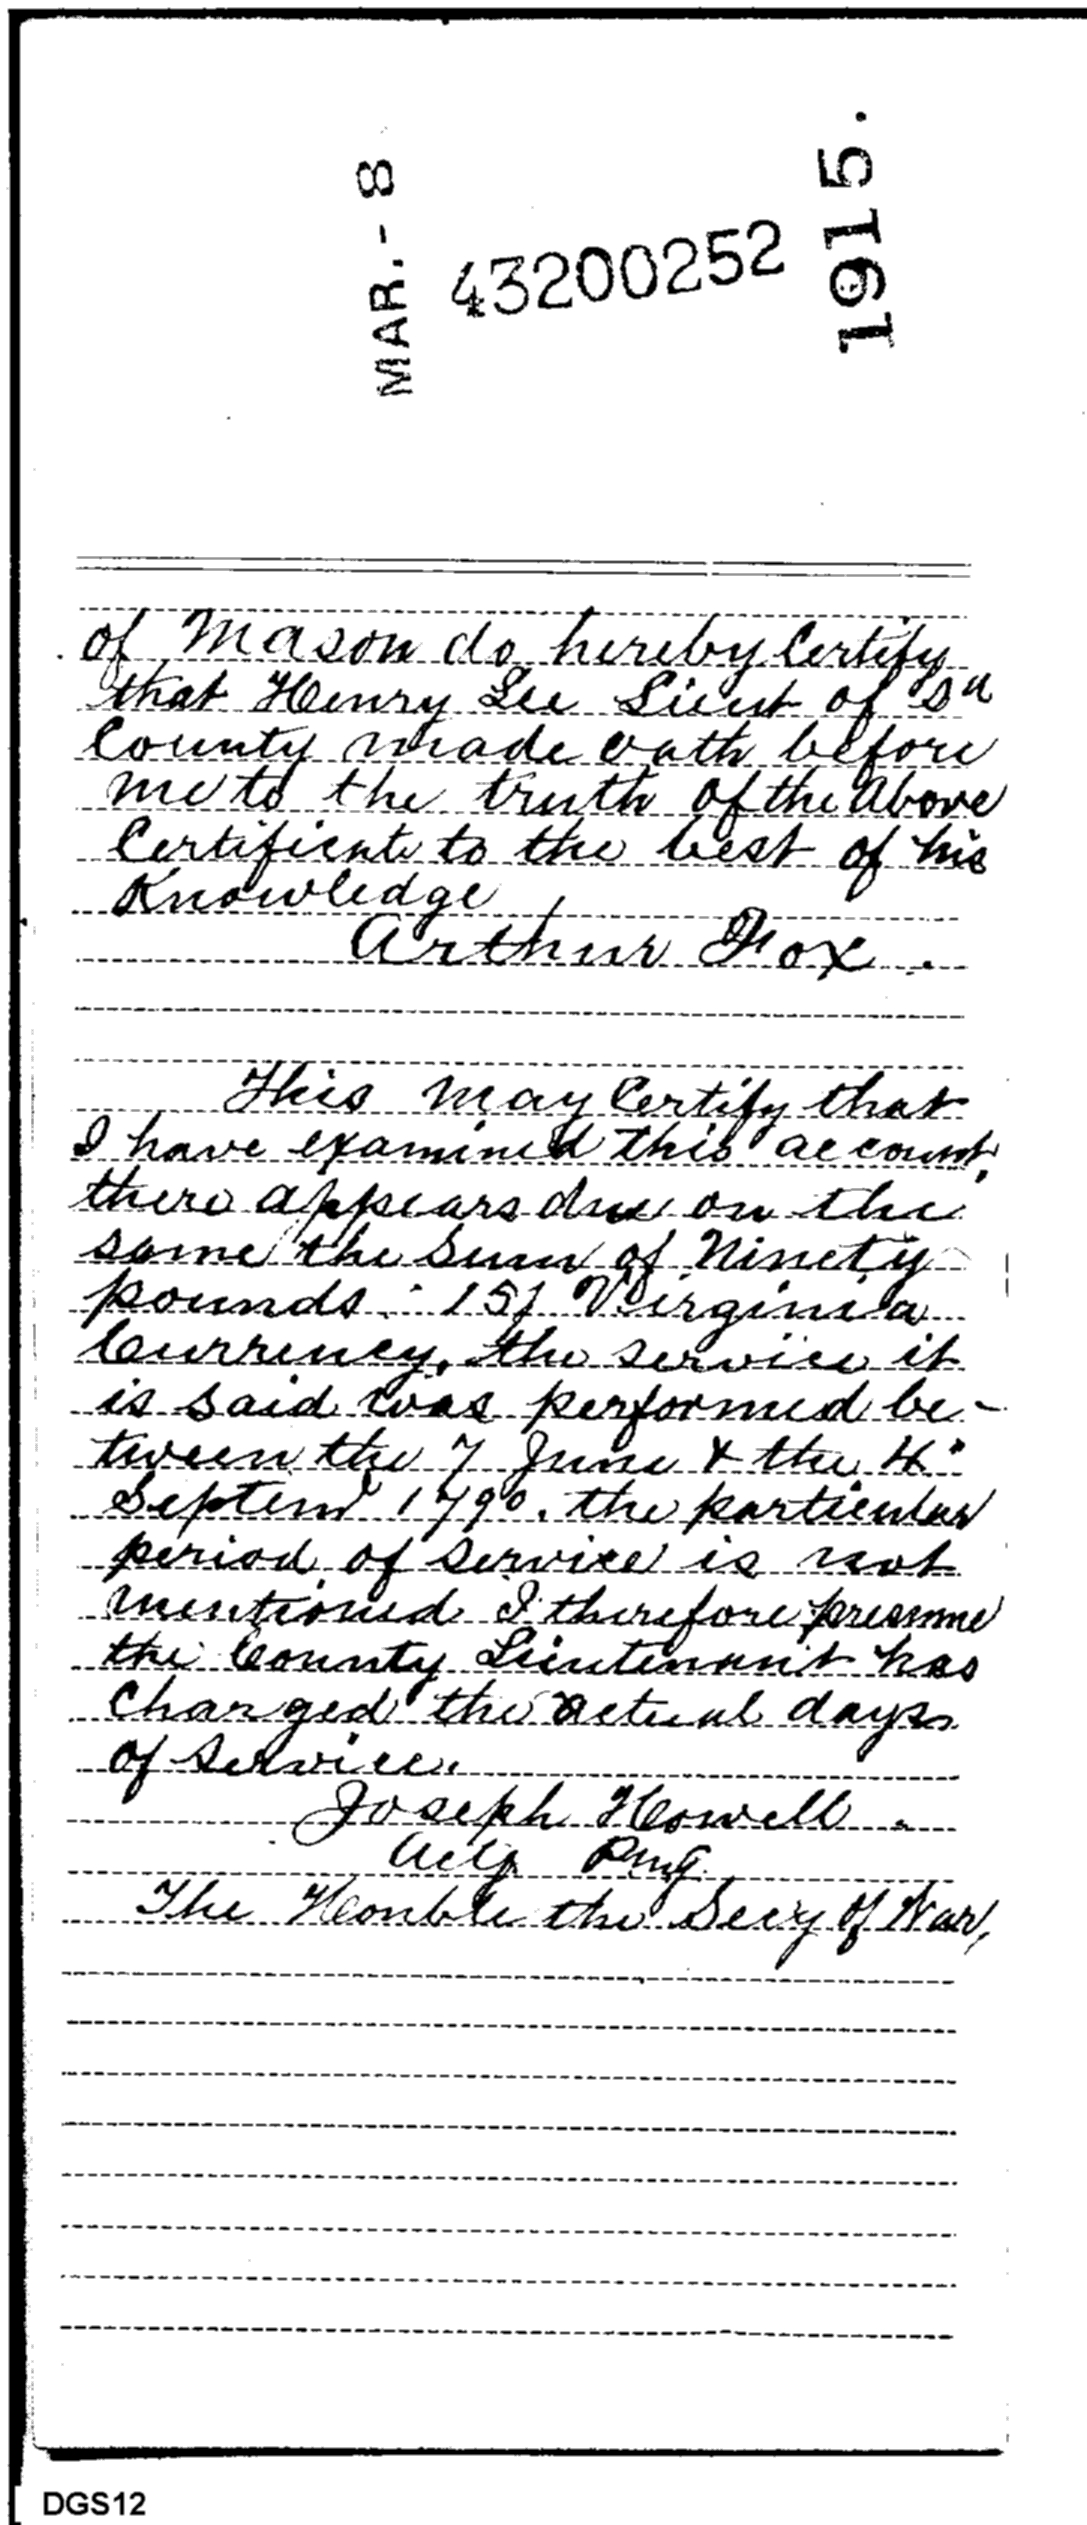 MAR.-8
43200252
1915.
of Mason do hereby Certify
that Henry Lee Lieut of Sd
County made oath before
me to the truth of the Above
Certificate to the best of his
Knowledge
Arthur Fox.
This may Certify that
I have examined this account,
there appears due on the
same the Sum of Ninety
pounds. 15/ Virginia
Currency, the service it
is said was performed be-
tween the 7 June & the 4"
Septem 1790. the particular
period of service is not
mentioned I therefore presume
the County Lieutenant has
Charged the actual days
of service.
Joseph Howell.
Actg PmG.
The Honble the Secy of War,
DGS12